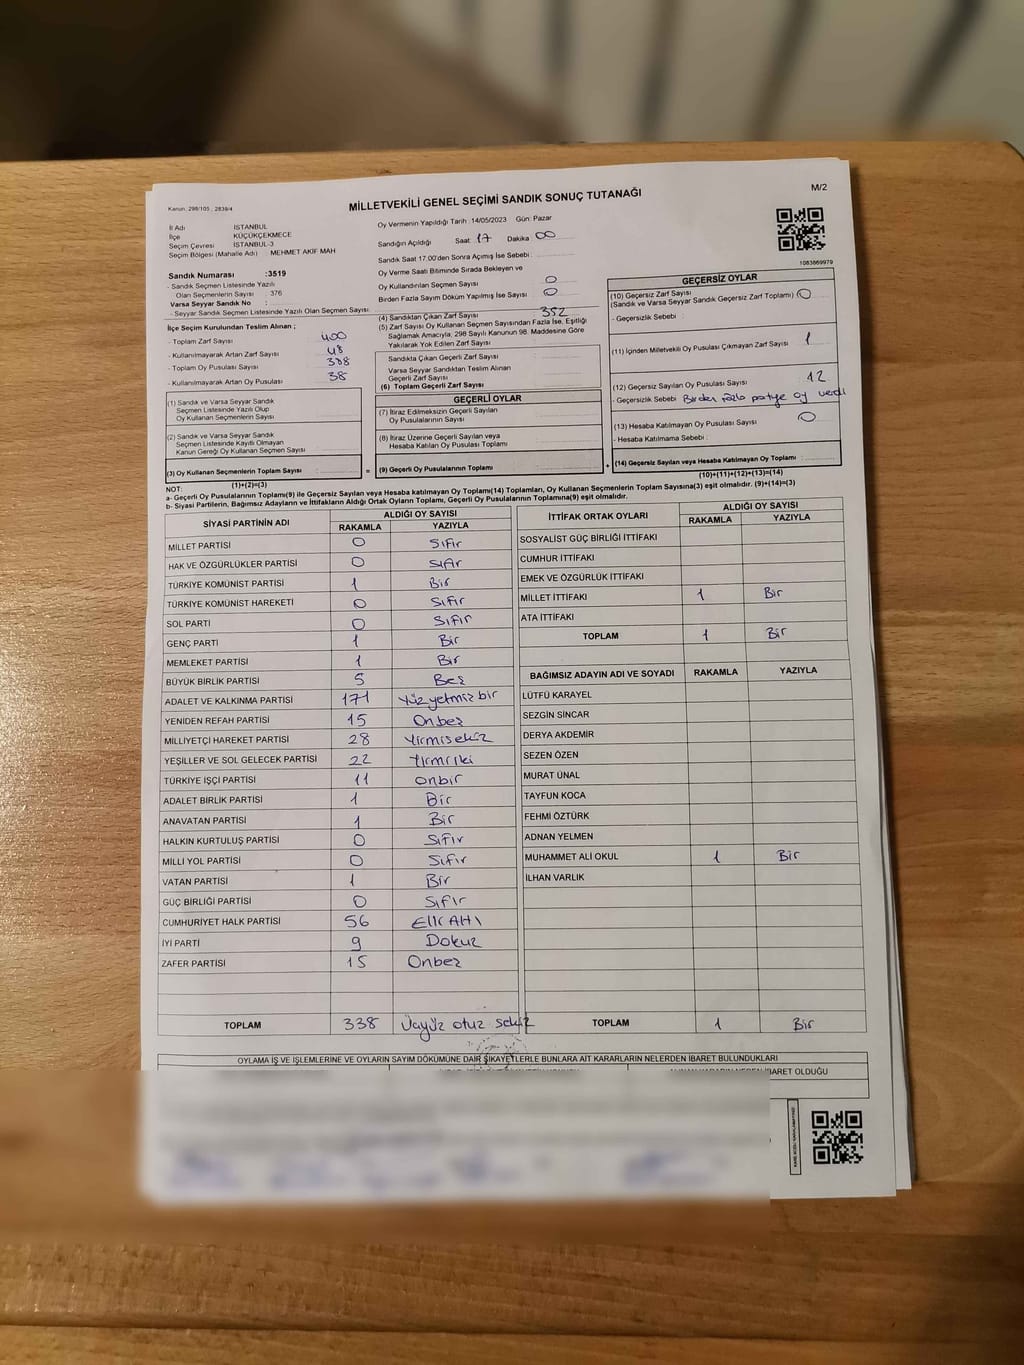 Kanun. 298/105 , 2839/4
MİLLETVEKİLİ GENEL SEÇİMİ SANDIK SONUÇ TUTANAĞI
M/2
İl Adı İSTANBUL
İlçe KÜÇÜKÇEKMECE
Seçim Çevresi İSTANBUL-3
Seçim Bölgesi (Mahalle Adı) MEHMET AKİF MAH
Sandık Numarası :3519
- Sandık Seçmen Listesinde Yazılı
Olan Seçmenlerin Sayısı : 376
Varsa Seyyar Sandık No :
- Seyyar Sandık Seçmen Listesinde Yazılı Olan Seçmen Sayısı:
İlçe Seçim Kurulundan Teslim Alınan ;
- Toplam Zarf Sayısı 400
- Kullanılmayarak Artan Zarf Sayısı 48
- Toplam Oy Pusulası Sayısı
- Kullanılmayarak Artan Oy Pusulası 38
(1) Sandık ve Varsa Seyyar Sandık
Seçmen Listesinde Yazılı Olup
Oy Kullanan Seçmenlerin Sayısı
(2) Sandık ve Varsa Seyyar Sandık
Seçmen Listesinde Kayıtlı Olmayan
Kanun Gereği Oy Kullanan Seçmen Sayısı
(3) Oy Kullanan Seçmenlerin Toplam Sayısı :
(1)+(2)=(3)
Oy Vermenin Yapıldığı Tarih :14/05/2023 Gün: Pazar
Sandığın Açıldığı Saat 17 Dakika 00
Sandık Saat 17.00'den Sonra Açımış İse Sebebi :
Oy Verme Saati Bitiminde Sırada Bekleyen ve
Oy Kullandırılan Seçmen Sayısı 0
Birden Fazla Sayım Döküm Yapılmış İse Sayısı : 0
(4) Sandıktan Çıkan Zarf Sayısı 352
(5) Zarf Sayısı Oy Kullanan Seçmen Sayısından Fazla İse, Eşitliği
Sağlamak Amacıyla, 298 Sayılı Kanunun 98. Maddesine Göre
Yakılarak Yok Edilen Zarf Sayısı
Sandıkta Çıkan Geçerli Zarf Sayısı
Varsa Seyyar Sandıktan Teslim Alınan
Geçerli Zarf Sayısı
(6) Toplam Geçerli Zarf Sayısı
GEÇERLİ OYLAR
(7) İtiraz Edilmeksizin Geçerli Sayılan
Oy Pusulalarının Sayısı
(8) İtiraz Üzerine Geçerli Sayılan veya
Hesaba Katılan Oy Pusulası Toplamı
= (9) Geçerli Oy Pusulalarının Toplamı +
1083869979
GEÇERSİZ OYLAR
(10) Geçersiz Zarf Sayısı
(Sandık ve Varsa Seyyar Sandık Geçersiz Zarf Toplamı) 0
- Geçersizlik Sebebi :
(11) İçinden Milletvekili Oy Pusulası Çıkmayan Zarf Sayısı 1
(12) Geçersiz Sayılan Oy Pusulası Sayısı 12
- Geçersizlik Sebebi Birden fazla partiye oy verdi
(13) Hesaba Katılmayan Oy Pusulası Sayısı 0
- Hesaba Katılmama Sebebi :
(14) Geçersiz Sayılan veya Hesaba Katılmayan Oy Toplamı :
(10)+(11)+(12)+(13)=(14)
NOT:
a- Geçerli Oy Pusulalarının Toplamı(9) ile Geçersiz Sayılan veya Hesaba katılmayan Oy Toplamı(14) Toplamları, Oy Kullanan Seçmenlerin Toplam Sayısına(3) eşit olmalıdır. (9)+(14)=(3)
b- Siyasi Partilerin, Bağımsız Adayların ve İttifakların Aldığı Ortak Oyların Toplamı, Geçerli Oy Pusulalarının Toplamına(9) eşit olmalıdır.
SİYASİ PARTİNİN ADI ALDIĞI OY SAYISI
RAKAMLA YAZIYLA
MİLLET PARTİSİ 0 Sıfır
HAK VE ÖZGÜRLÜKLER PARTİSİ 0 Sıfır
TÜRKİYE KOMÜNİST PARTİSİ 1 Bir
TÜRKİYE KOMÜNİST HAREKETİ 0 Sıfır
SOL PARTİ 0 Sıfır
GENÇ PARTİ 1 Bir
MEMLEKET PARTİSİ 1 Bir
BÜYÜK BİRLİK PARTİSİ 5 Beş
ADALET VE KALKINMA PARTİSİ 171 Yüzyetmişbir
YENİDEN REFAH PARTİSİ 15 Onbeş
MİLLİYETÇİ HAREKET PARTİSİ 28 Yirmisekiz
YEŞİLLER VE SOL GELECEK PARTİSİ 22 Yirmiiki
TÜRKİYE İŞÇİ PARTİSİ 11 Onbir
ADALET BİRLİK PARTİSİ 1 Bir
ANAVATAN PARTİSİ 1 Bir
HALKIN KURTULUŞ PARTİSİ 0 Sıfır
MİLLİ YOL PARTİSİ 0 Sıfır
VATAN PARTİSİ 1 Bir
GÜÇ BİRLİĞİ PARTİSİ 0 Sıfır
CUMHURİYET HALK PARTİSİ 56 Elli Altı
İYİ PARTİ 9 Dokuz
ZAFER PARTİSİ 15 Onbeş
TOPLAM 338 Üçyüz otuz sekiz
İTTİFAK ORTAK OYLARI ALDIĞI OY SAYISI
RAKAMLA YAZIYLA
SOSYALİST GÜÇ BİRLİĞİ İTTİFAKI
CUMHUR İTTİFAKI
EMEK VE ÖZGÜRLÜK İTTİFAKI
MİLLET İTTİFAKI 1 Bir
ATA İTTİFAKI
TOPLAM 1 Bir
BAĞIMSIZ ADAYIN ADI VE SOYADI RAKAMLA YAZIYLA
LÜTFÜ KARAYEL
SEZGİN SİNCAR
DERYA AKDEMİR
SEZEN ÖZEN
MURAT ÜNAL
TAYFUN KOCA
FEHMİ ÖZTÜRK
ADNAN YELMEN
MUHAMMET ALİ OKUL 1 Bir
İLHAN VARLIK
TOPLAM 1 Bir
OYLAMA İŞ VE İŞLEMLERİNE VE OYLARIN SAYIM DÖKÜMÜNE DAİR ŞİKAYETLERLE BUNLARA AİT KARARLARIN NELERDEN İBARET BULUNDUKLARI
İBARET OLDUĞU